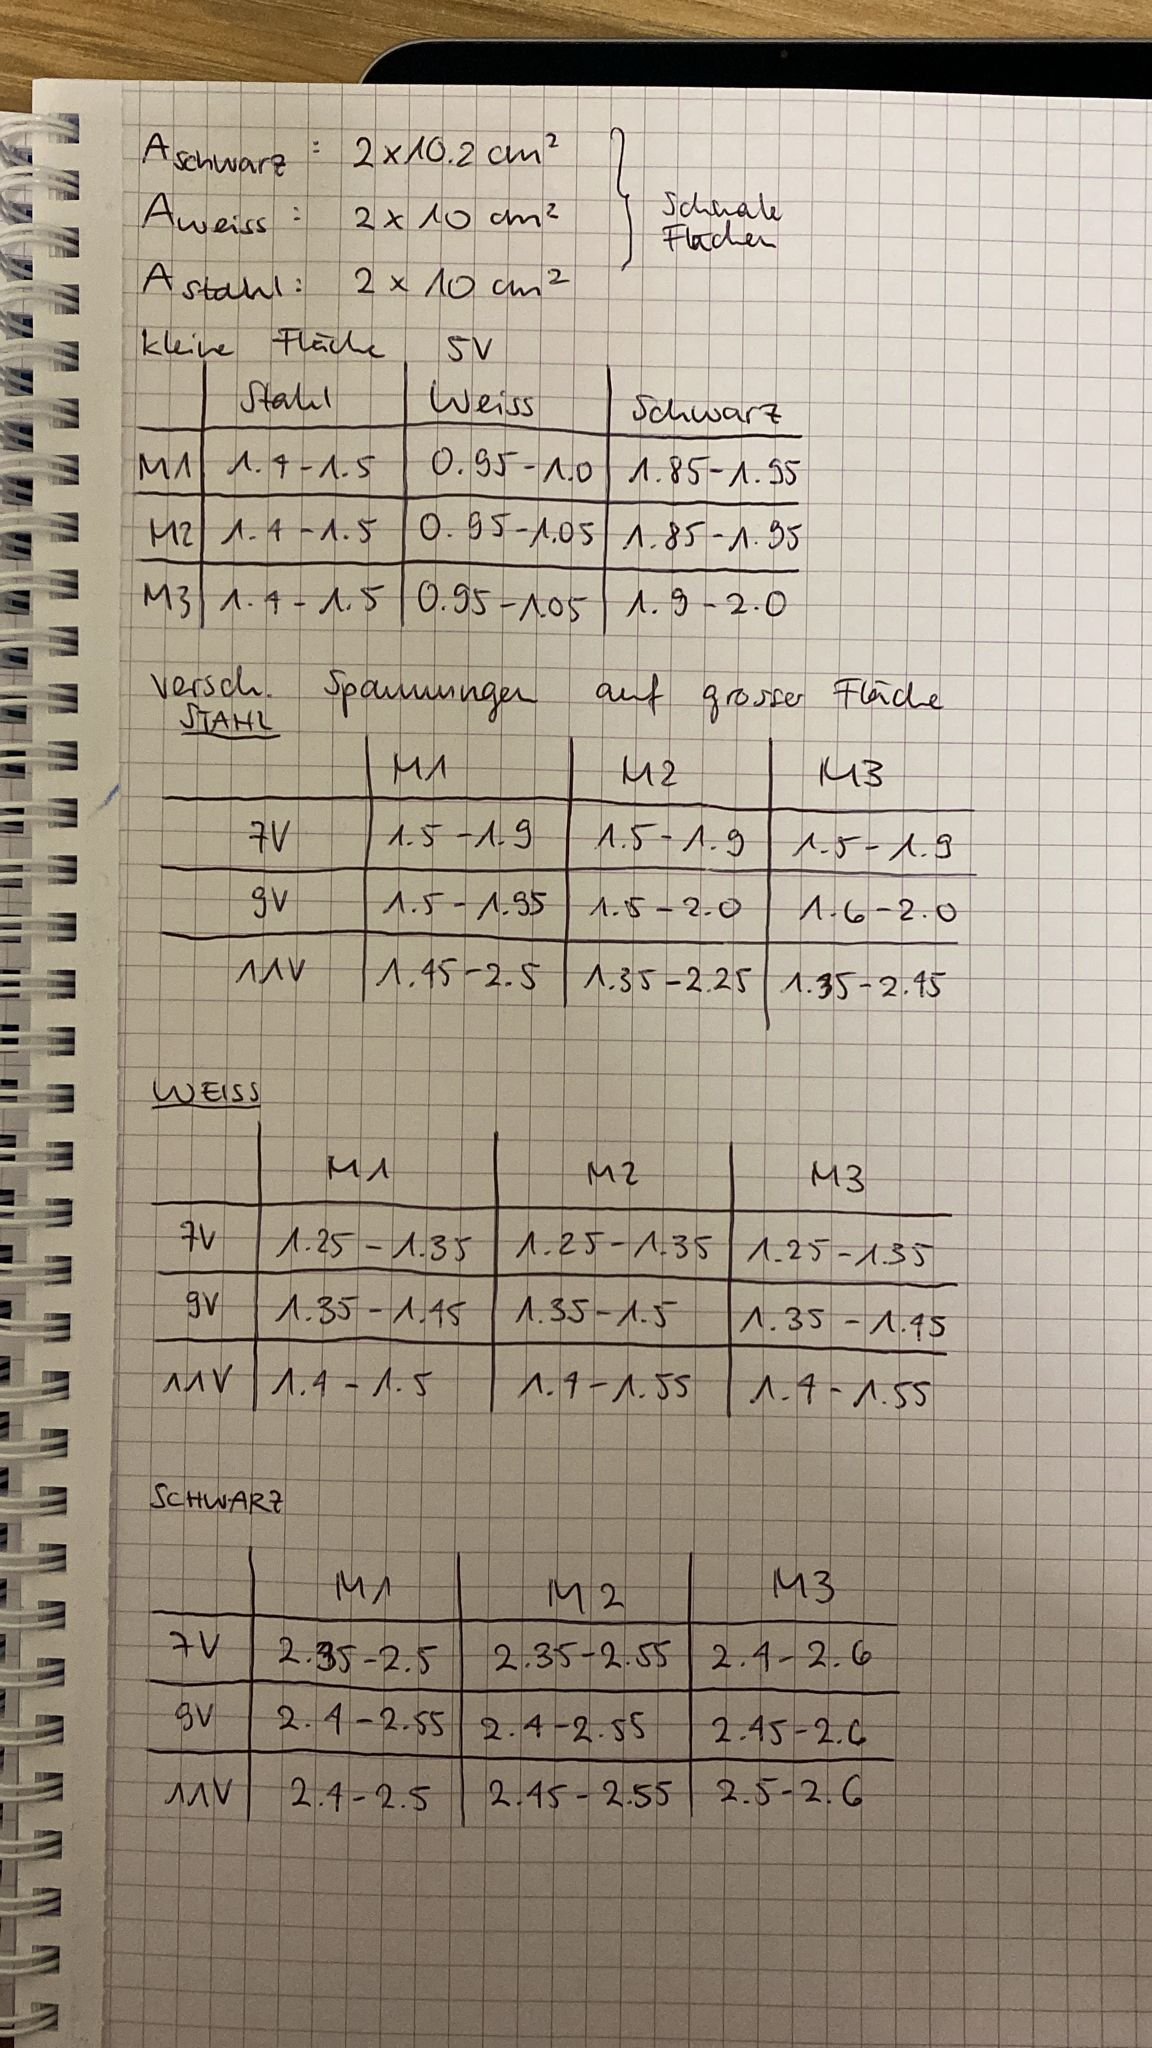 Aschwarz: 2x10.2 cm²
Aweiss: 2 x 10 cm²
Astahl: 2 x 10 cm²
Schmale
Flächen
kleine Fläche 5V
Stahl Weiss Schwarz
M1 1.4-1.5 0.95-1.0 1.85-1.95
M2 1.4-1.5 0.95-1.05 1.85-1.95
M3 1.4-1.5 0.95-1.05 1.9-2.0
versch. Spannungen auf grosser Fläche
STAHL
M1 M2 M3
7V 1.5-1.9 1.5-1.9 1.5-1.9
9V 1.5-1.95 1.5-2.0 1.6-2.0
11V 1.45-2.5 1.35-2.25 1.35-2.45
WEISS
M1 M2 M3
7V 1.25-1.35 1.25-1.35 1.25-1.35
9V 1.35-1.45 1.35-1.5 1.35-1.45
11V 1.4-1.5 1.4-1.55 1.4-1.55
SCHWARZ
M1 M2 M3
7V 2.35-2.5 2.35-2.55 2.4-2.6
9V 2.4-2.55 2.4-2.55 2.45-2.6
11V 2.4-2.5 2.45-2.55 2.5-2.6